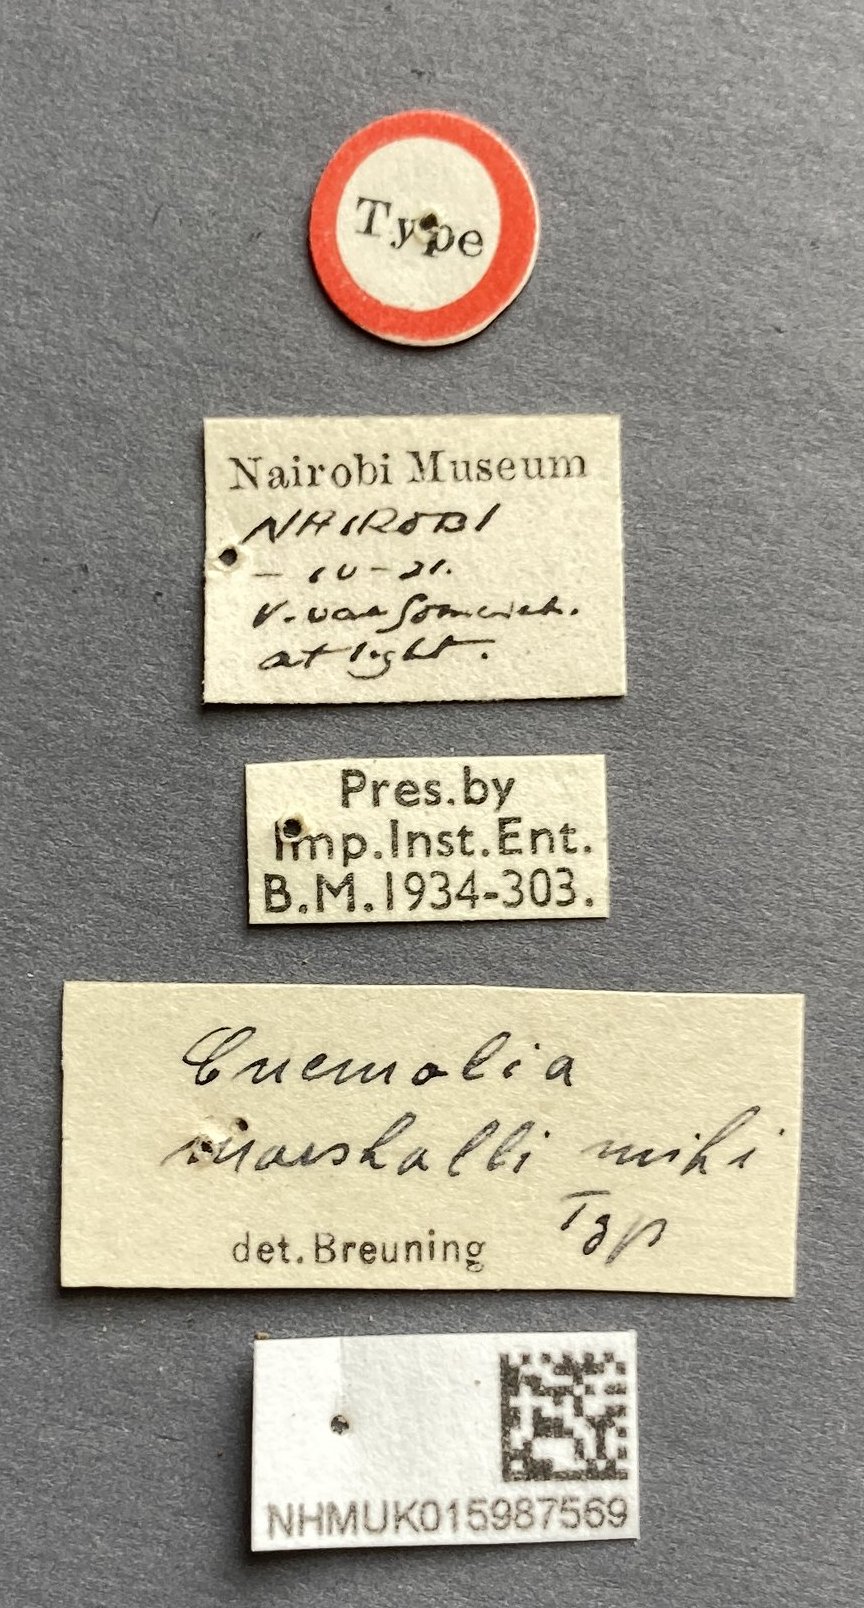 Type
Nairobi Museum
NAIROBI
- IV - 21.
V. van Someren.
at light.
Pres.by
Imp.Inst.Ent.
B.M.1934-303.
Cnemolia
marshalli mihi
Typ
det.Breuning
NHMUK015987569